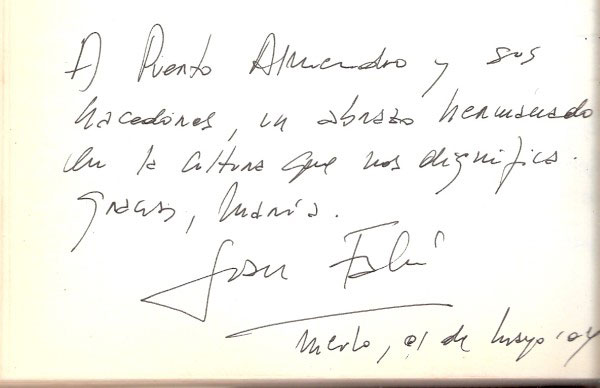 A Puerto Almendro y sus
hacedores, un abrazo hermanado
en la cultura que nos dignifica.
Gracias, María.
Juan Falú
Merlo, 01 de Mayo '04